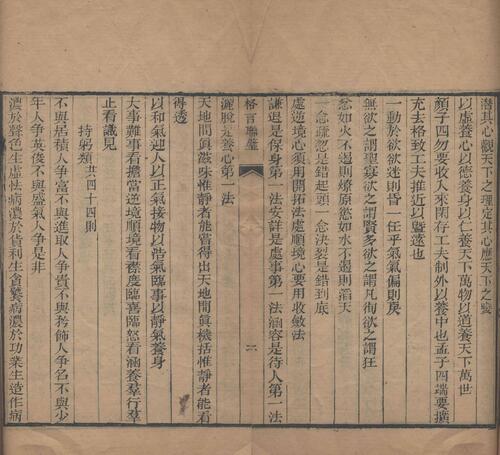 潛其心觀天下之理定其心應天下之變
以虛養心以德養身以仁養天下萬物以道養天下萬世
顏子四勿要收入來閑存工夫制外以養中也孟子四端要擴
充去格致工夫推近以曁遠也
一動於欲欲迷則昏一任乎氣氣偏則戾
無欲之謂聖寡欲之謂賢多欲之謂凡徇欲之謂狂
忿如火不遏則燎原慾如水不遏則滔天
一念疏忽是錯起頭一念決裂是錯到底
處逆境心須用開拓法處順境心要用收斂法
謙退是保身第一法安詳是處事第一法涵容是待人第一法
格言聯璧
二
灑脫是養心第一法
天地間眞滋味惟靜者能嘗得出天地間眞機括惟靜者能看
得透
以和氣迎人以正氣接物以浩氣臨事以靜氣養身
大事難事看擔當逆境順境看襟度臨喜臨怒看涵養羣行羣
止看識見
持躬類 共四十四則
不與居積人爭富不與進取人爭貴不與矜飾人爭名不與少
年人爭英俊不與盛氣人爭是非
濃於聲色生虛怯病濃於貨利生貪饕病濃於功業生造作病